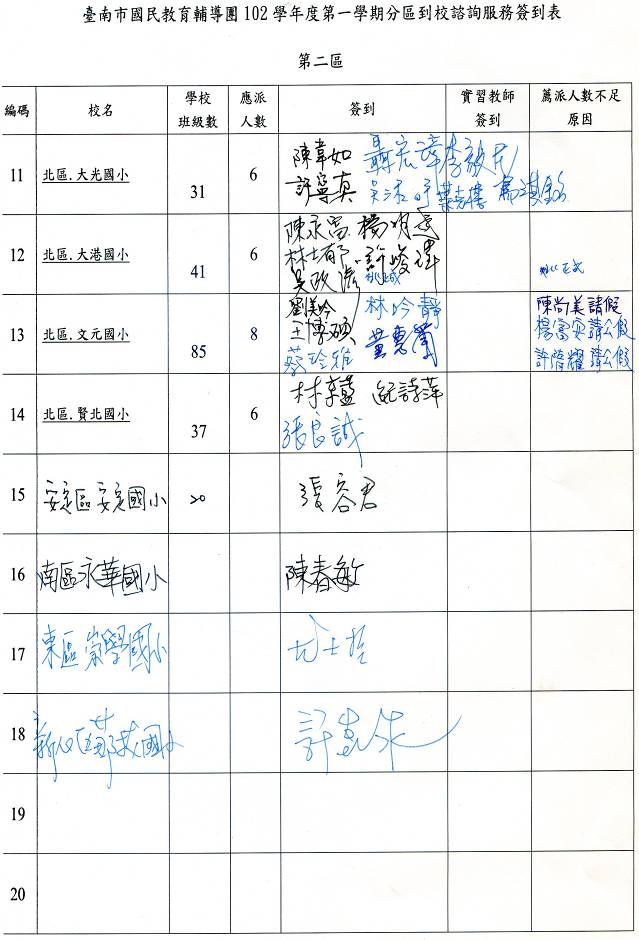 臺南市國民教育輔導團 102 學年度第一學期分區到校諮詢服務簽到表
第二區
編碼 校名 學校班級數 應派人數 簽到 實習教師簽到 薦派人數不足原因
11 北區.大光國小 31 6
陳韋如
許寧真
12 北區.大港國小 41 6
陳永富 楊明
林士郁 許峻瑋
13 北區.文元國小 85 8
劉美吟 林吟靜 陳尚美請假
王博 黃惠 楊富安請公假
蔡玲雅 許 請公假
14 北區.賢北國小 37 6
林 詩萍
張良誠
15 安定區安定國小 20 張容君
16 南區永華國小 陳春敏
17 東區崇學國小
18 國小 許
19
20